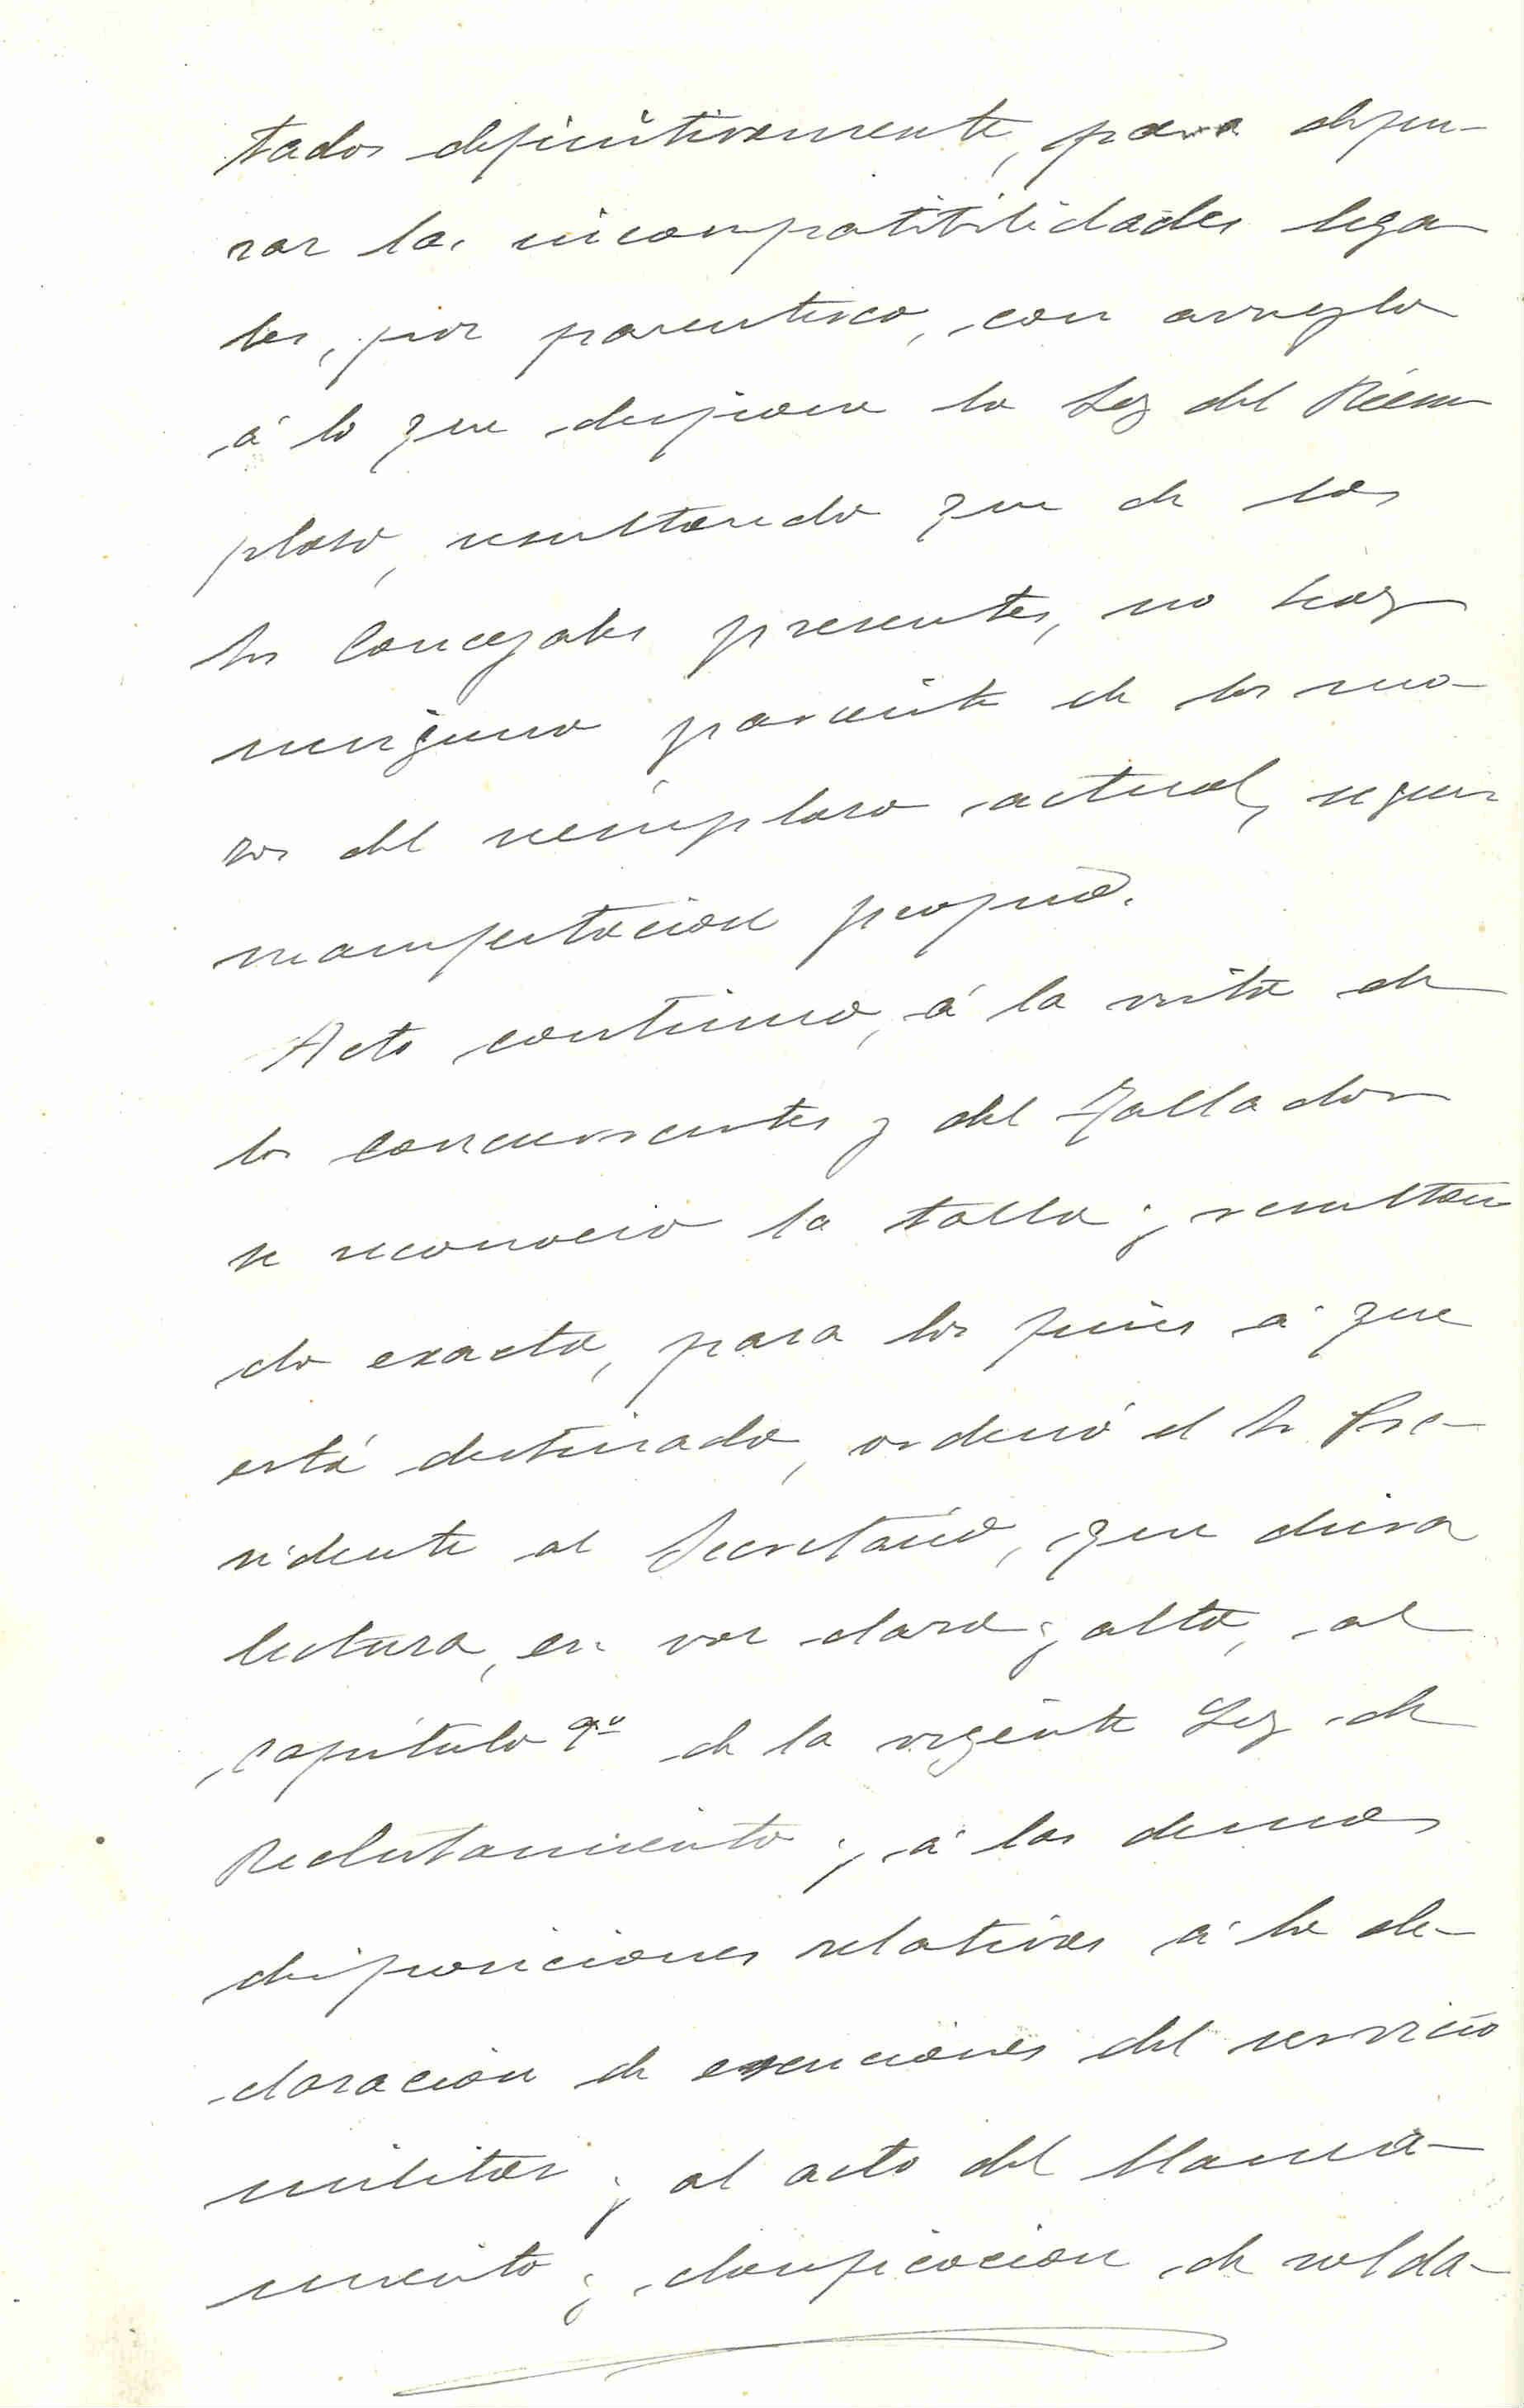 tados definitivamente, para depu-
rar las incompatibilidades lega
les, por parentesco, con arreglo
á lo que dispone la Ley del Réem
plazo, resultando que de los
Srs Concejales presentes, no hay
ninguno pariente de los mo-
zos del reemplazo actual, segun
manifestacion propia.
Acto continuo, á la vista de
los concurrentes y del Tallador
se reconoció la talla y resultan
do exacta, para los fines á que
está destinada, ordenó el Sr Pre-
sidente al Secretario, que diera
lectura, en voz clara y alta, al
Capítulo 9º de la vigente Ley de
Reclutamiento y á las demas
disposiciones relativas á la de-
claracion de exenciones del servicio
militar y al acto del llama-
miento y clasificacion de solda-